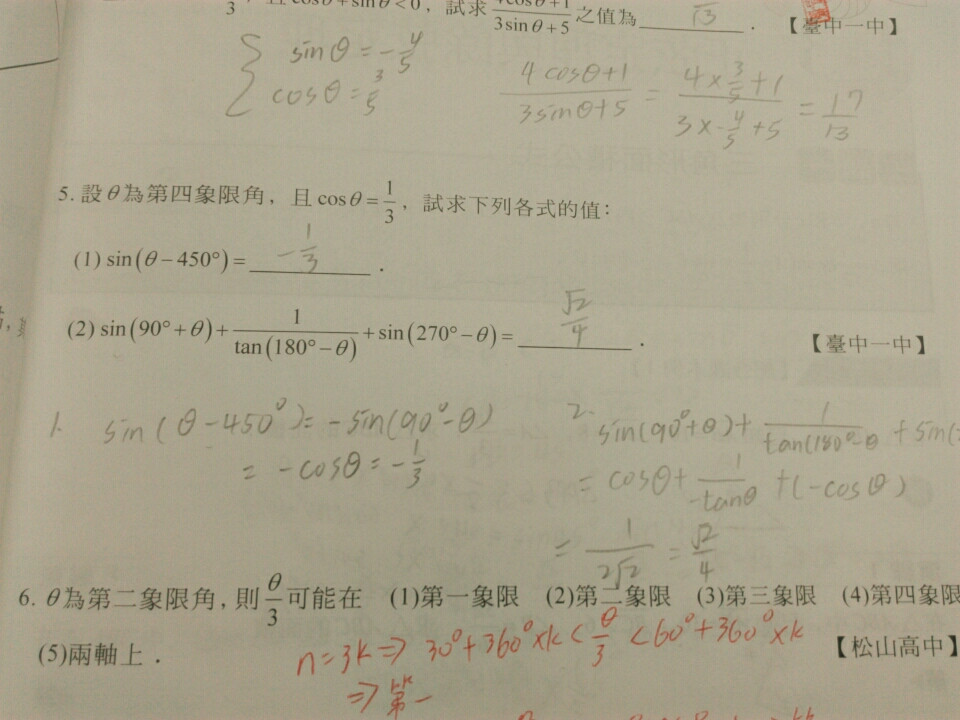 3 , 且 cosθ+sinθ<0 , 試求 4cosθ+1 / 3sinθ+5 之值為 ___ . 【臺中一中】
13
{ sinθ = -4/5
cosθ = 3/5
4cosθ+1 / 3sinθ+5 = 4×3/5+1 / 3×-4/5+5 = 17/13
5. 設θ為第四象限角, 且cosθ=1/3, 試求下列各式的值:
(1) sin(θ-450°)= -1/3 .
(2) sin(90°+θ)+1/tan(180°-θ)+sin(270°-θ)= √2/4 . 【臺中一中】
1. sin(θ-450°)= -sin(90°-θ)
= -cosθ = -1/3
2. sin(90°+θ)+ 1/tan(180°-θ +sin(
= cosθ+ 1/-tanθ +(-cosθ)
= 1/2√2 = √2/4
6. θ為第二象限角, 則θ/3可能在 (1)第一象限 (2)第二象限 (3)第三象限 (4)第四象限
(5)兩軸上. 【松山高中】
n=3k⇒ 30°+360°×k < θ/3 < 60°+360°×k
⇒ 第一